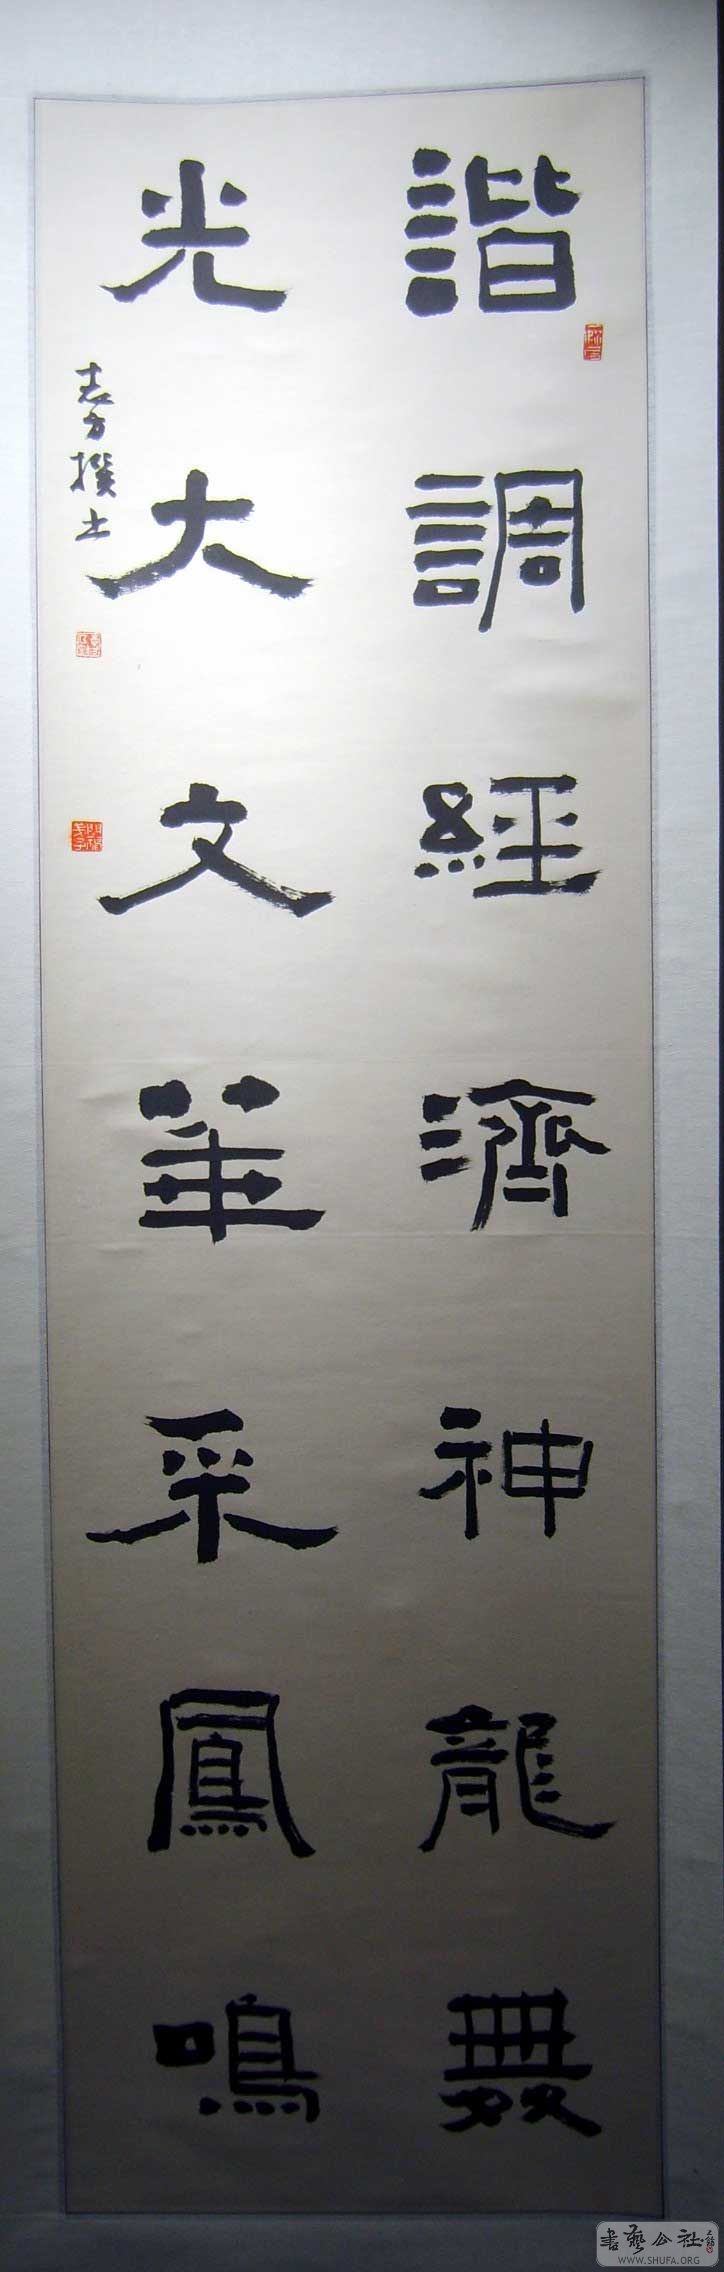 諧調經濟神龍舞
光大文華采鳳鳴
書藝公社
WWW.SHUFA.ORG